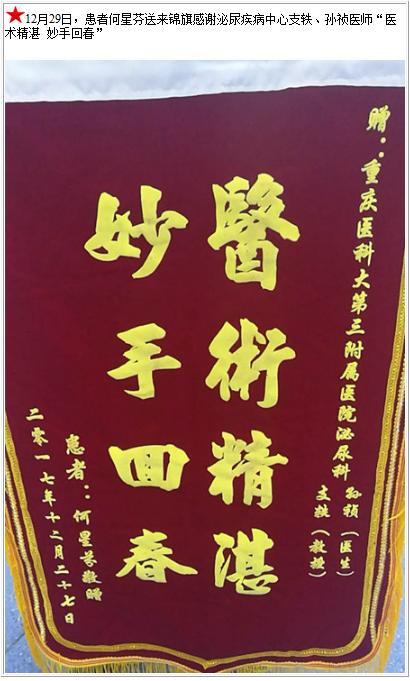 ★12月29日，患者何星芬送来锦旗感谢泌尿疾病中心支轶、孙祯医师“医
术精湛 妙手回春”
赠：重庆医科大第三附属医院泌尿科 孙祯（医生）
支轶（教授）
醫術精湛
妙手回春
患者：何星芬敬赠
二零一七年十二月二十七日